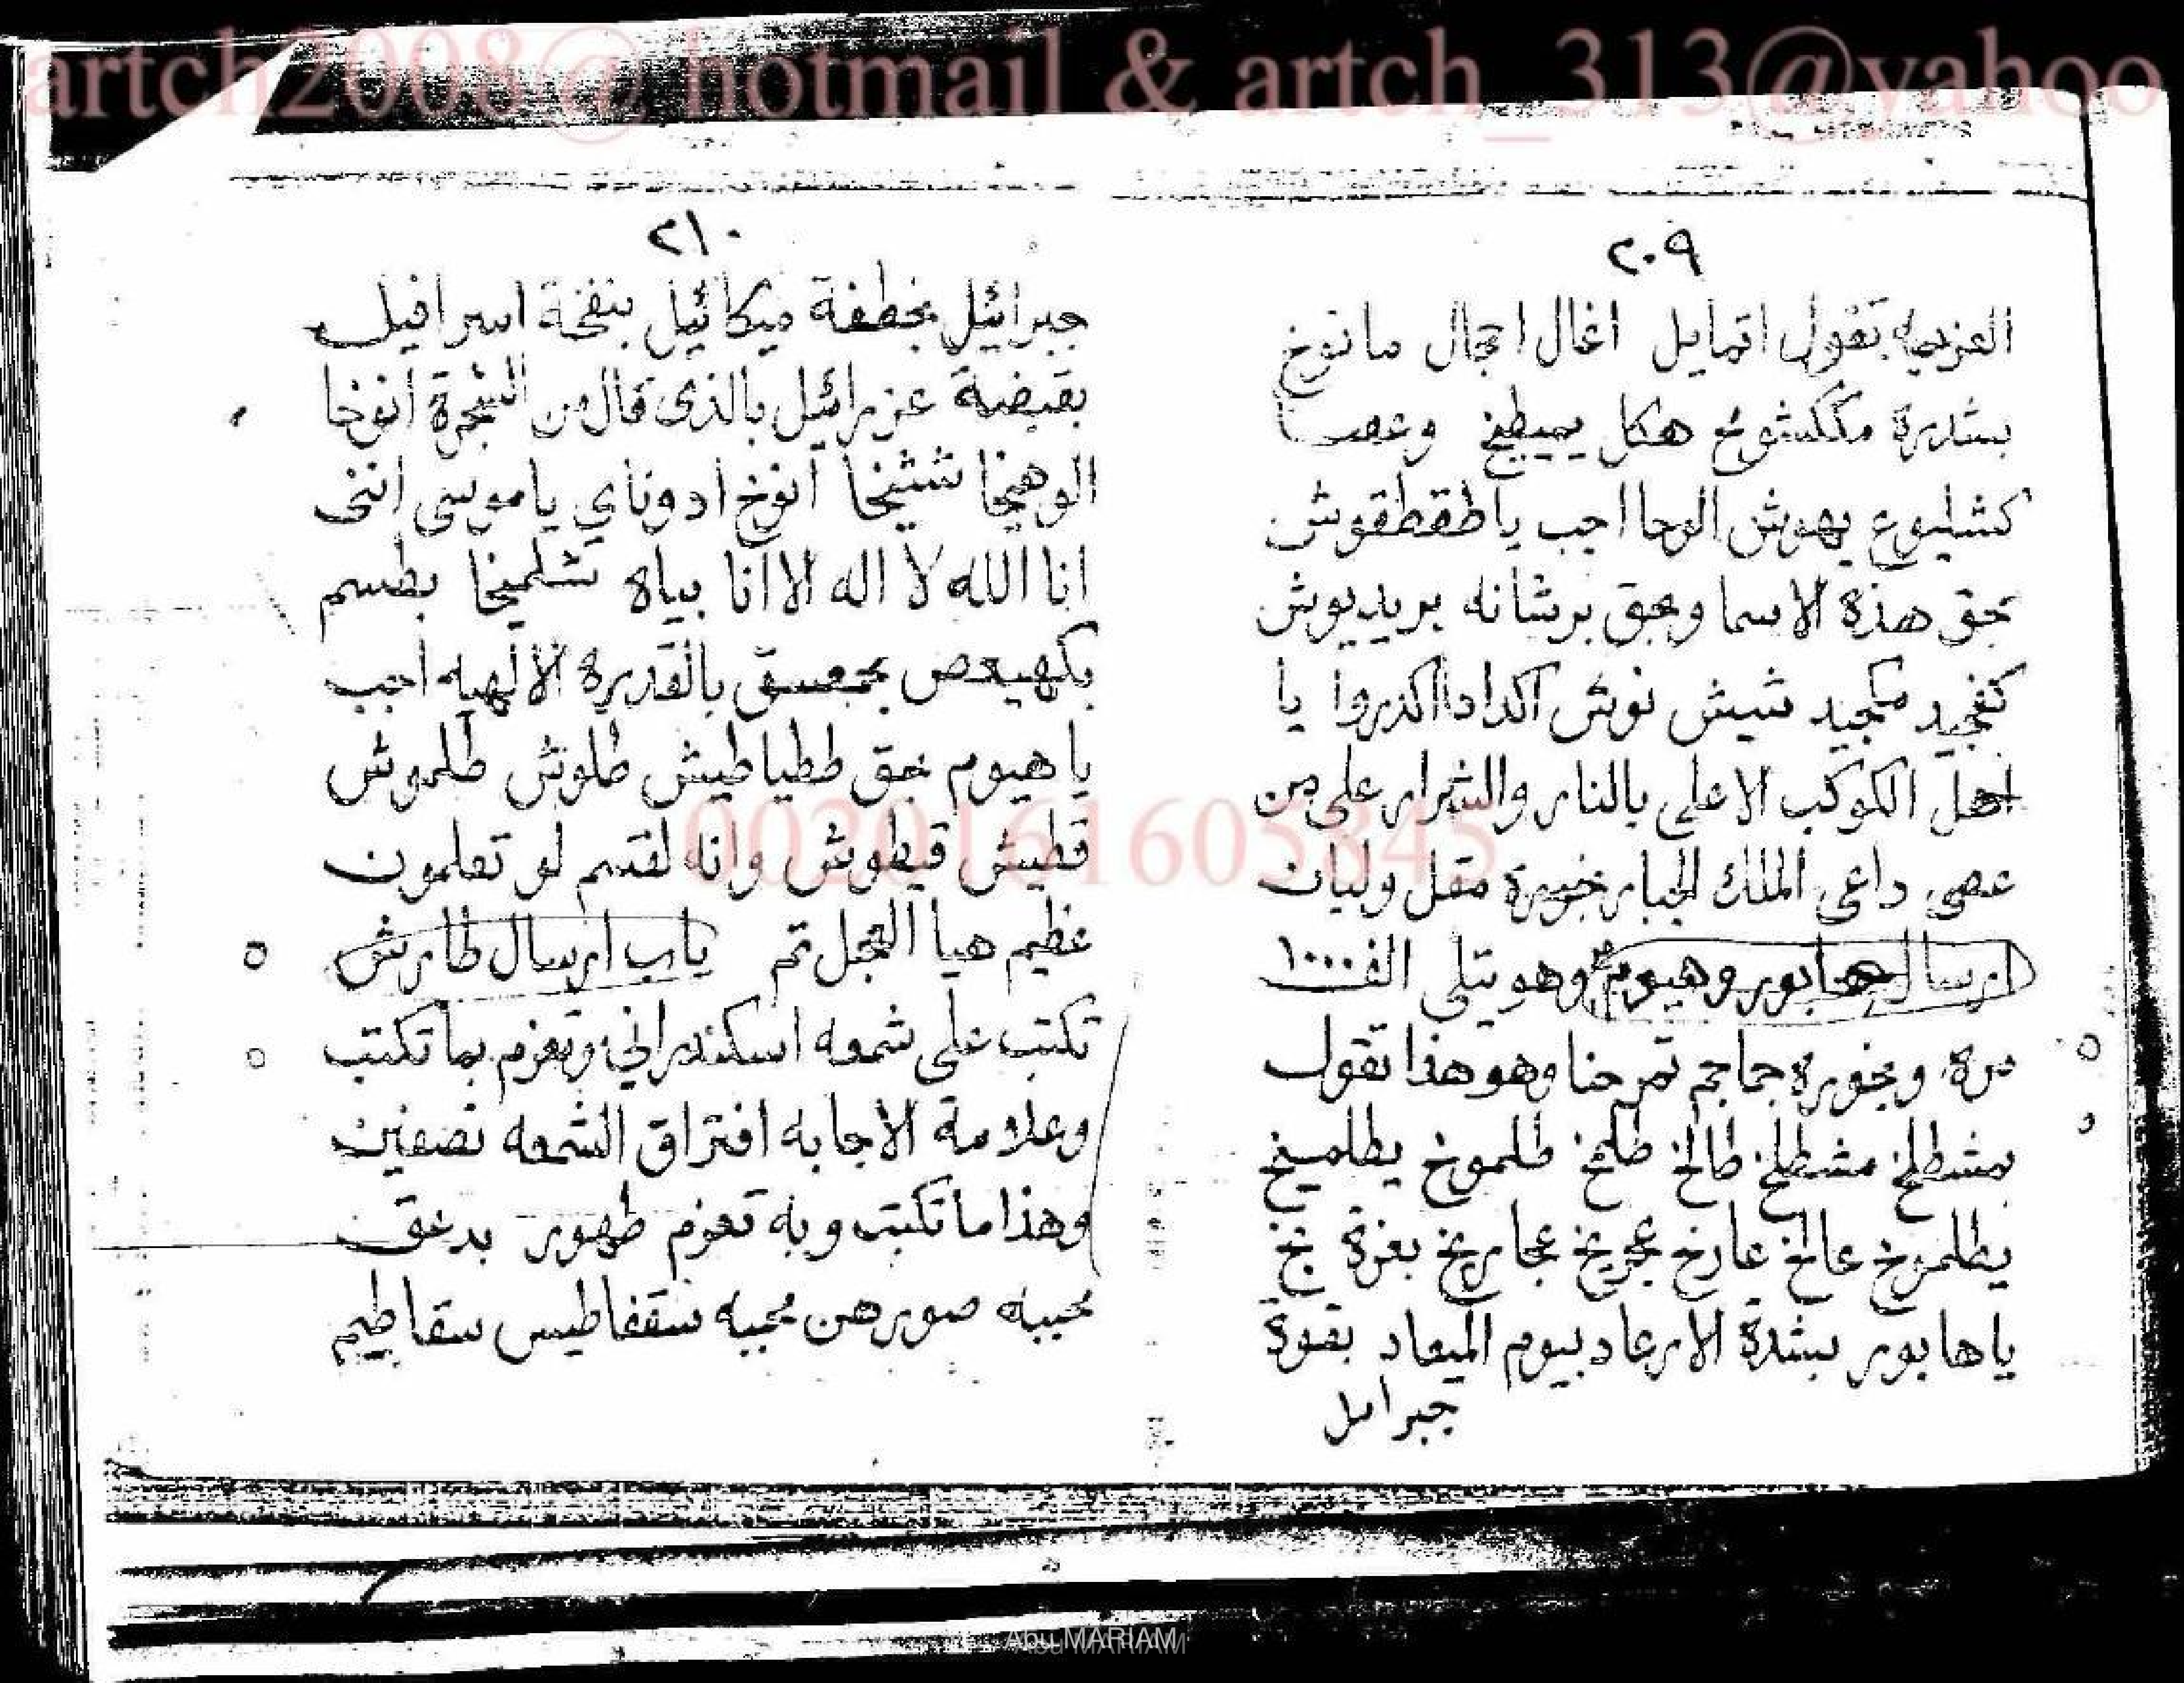 artch2008@ hotmail & artch_313@yahoo
٢٠٩
العزيمه تقول اتمايل اغال اجال مانوخ
بشدرة مككشوع هكل يميطخ وعصا
كشليوع يهوش الوحا اجب ياطقطقوش
بحق هذه الاسما وبحق برشانه بريديوش
كنجيد مكجيد شيش نوش اكدادا اكدروا يا
اهل الكوكب الاعلى بالنار والشرار على من
عصى داعى الملك الجبار خبيرة مقل ولبان
ارسال هابور وهيوم وهو يتلى الف ١٠٠٠
مرة وبخوره جماجم تمرحنا وهو هذا تقول
بمشطلخ مشطلخ طالخ طلخ طلموخ يطلميخ
يطلموخ عالخ عارخ عجريخ عجاريخ بعزة نخ
ياهابور بشدة الارعاد بيوم الميعاد بقوة
جبرائيل
٢١٠
جبرائيل بخطفة ميكائيل بنفخة اسرافيل
بقبضة عزرائيل بالذى قال من الشجرة انوخا
الوهيخا شثيخا انوخ ادوناي ياموسى اننى
انا الله لا اله الا انا بياه تشلميخا بطسم
بكهيعص بحمعسق بالقدرة الالهيه اجب
ياهيوم بحق ططياطيش طلوش طلموش
قطيش قيطوش وانه لقسم لو تعلمون
عظيم هيا العجل تم باب ارسال طارش
تكتب على شمعه اسكندراني وتعزم بما تكتب
وعلامة الاجابه افتراق الشمعه نصفين
وهذا ما تكتب وبه تعزم طهور بدعق
محببه صورهن محببه سقفاطيس سقاطيم
0020161605845
Abu MARIAM